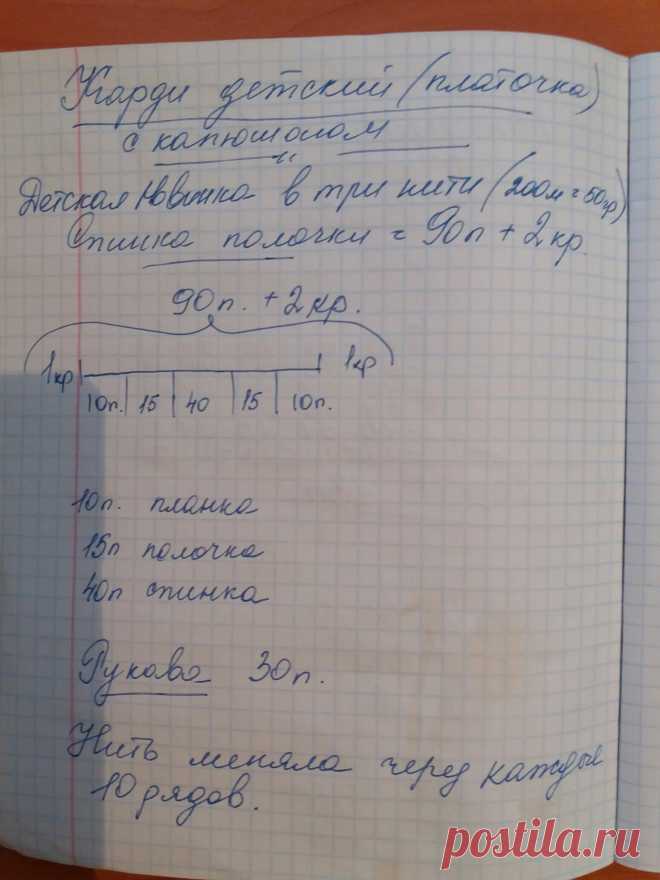 Карди детский (платочка)
с капюшоном
Детская Новинка в три нити (200м = 50гр)
Спинка полочки = 90п + 2кр.
90п. + 2кр.
1кр 1кр
10п. 15 40 15 10п.
10п. планка
15п полочка
40п спинка
Рукова 30п.
Нить меняла через каждые
10 рядов.
postila.ru